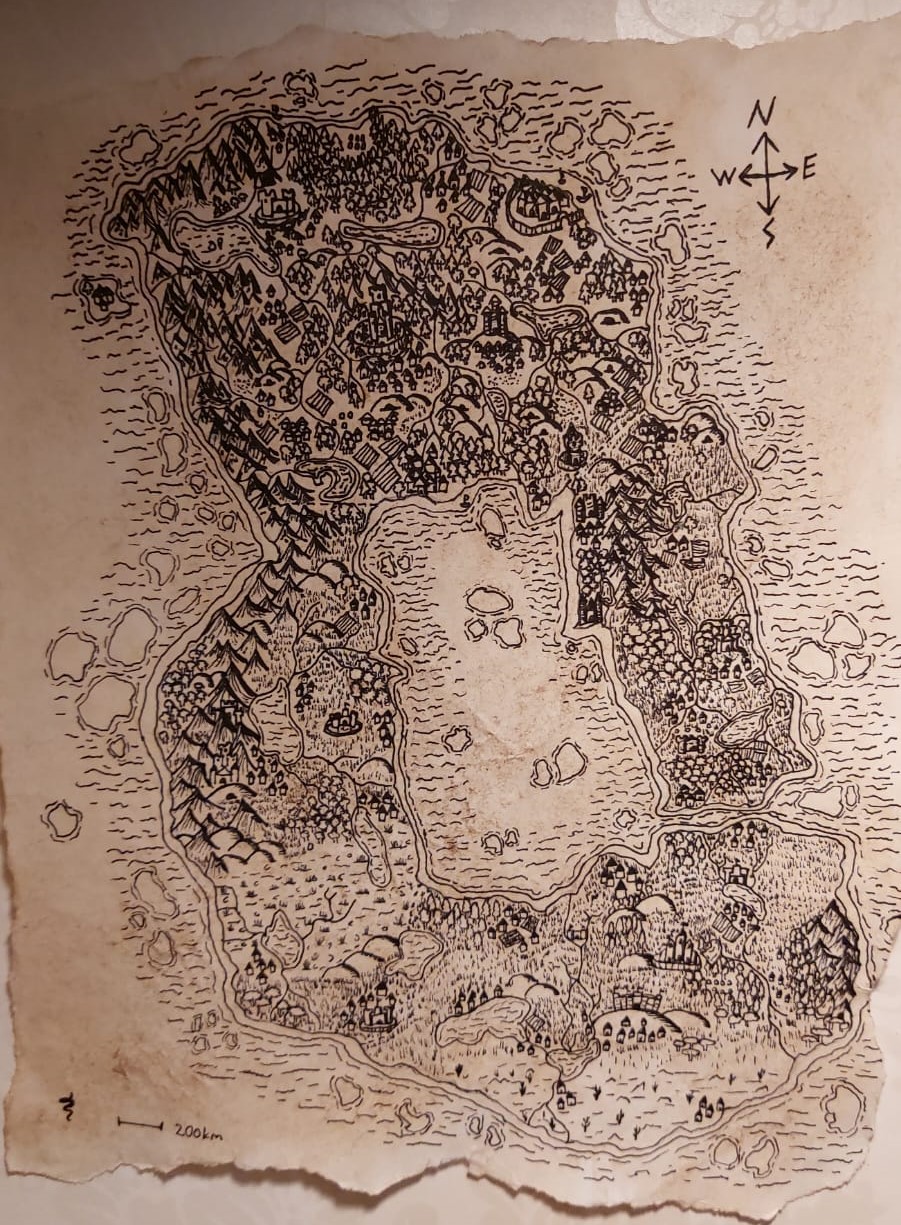 N
W E
S
200km